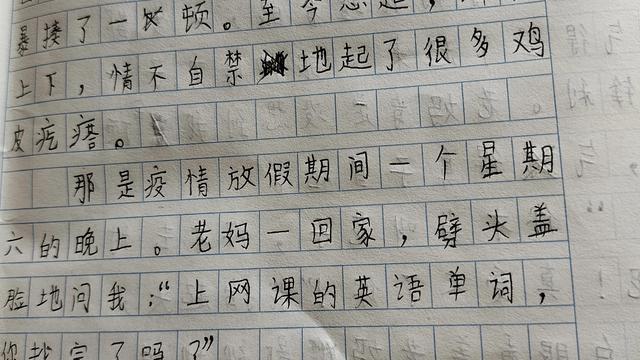 暴揍了一顿。至今想起，
上下，情不自禁地起了很多鸡
皮疙瘩。
那是疫情放假期间一个星期
六的晚上。老妈一回家，劈头盖
脸地问我："上网课的英语单词，
你找完了吗？"